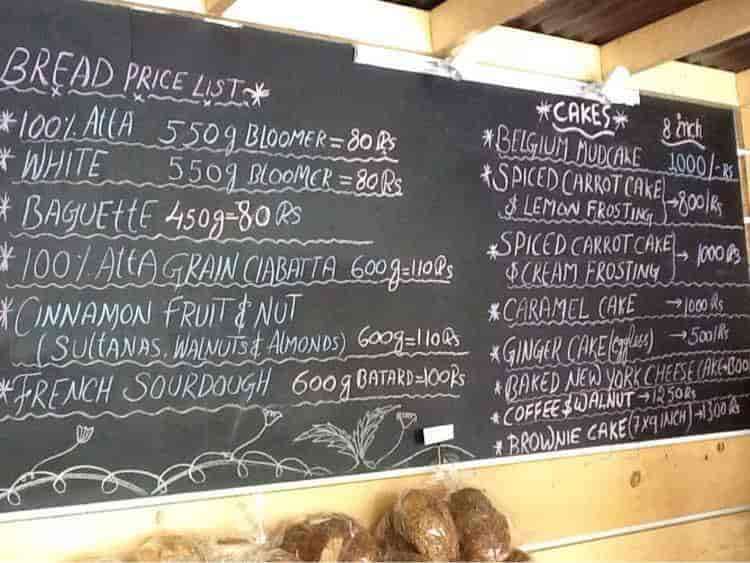 BREAD PRICE LIST
*100% Atta 550g BLOOMER = 80 Rs
*WHITE 550g BLOOMER = 80 Rs
*BAGUEttE 450g = 80 Rs
*100% Atta GRAIN CIABATTA 600g = 110 Rs
*CINNAMON FRUIT & NUT
(SULTANAS, WALNUTS & ALMONDS) 600g = 110 Rs
*FRENCH SOURDOUGH 600g BATARD = 100 Rs
*CAKES* 8 inch
*BELGIUM MUDCAKE 1000/- Rs
*SPICED CARROT CAKE
& LEMON FROSTING → 800/Rs
*SPICED CARROT CAKE
& CREAM FROSTING → 1000 Rs
*CARAMEL CAKE → 1000 Rs
*GINGER CAKE (eggless) → 500/Rs
*BAKED NEW YORK CHEESE CAKE
*COFFEE & WALNUT → 1250 Rs
*BROWNIE CAKE (7X9 INCH) → 1300 Rs